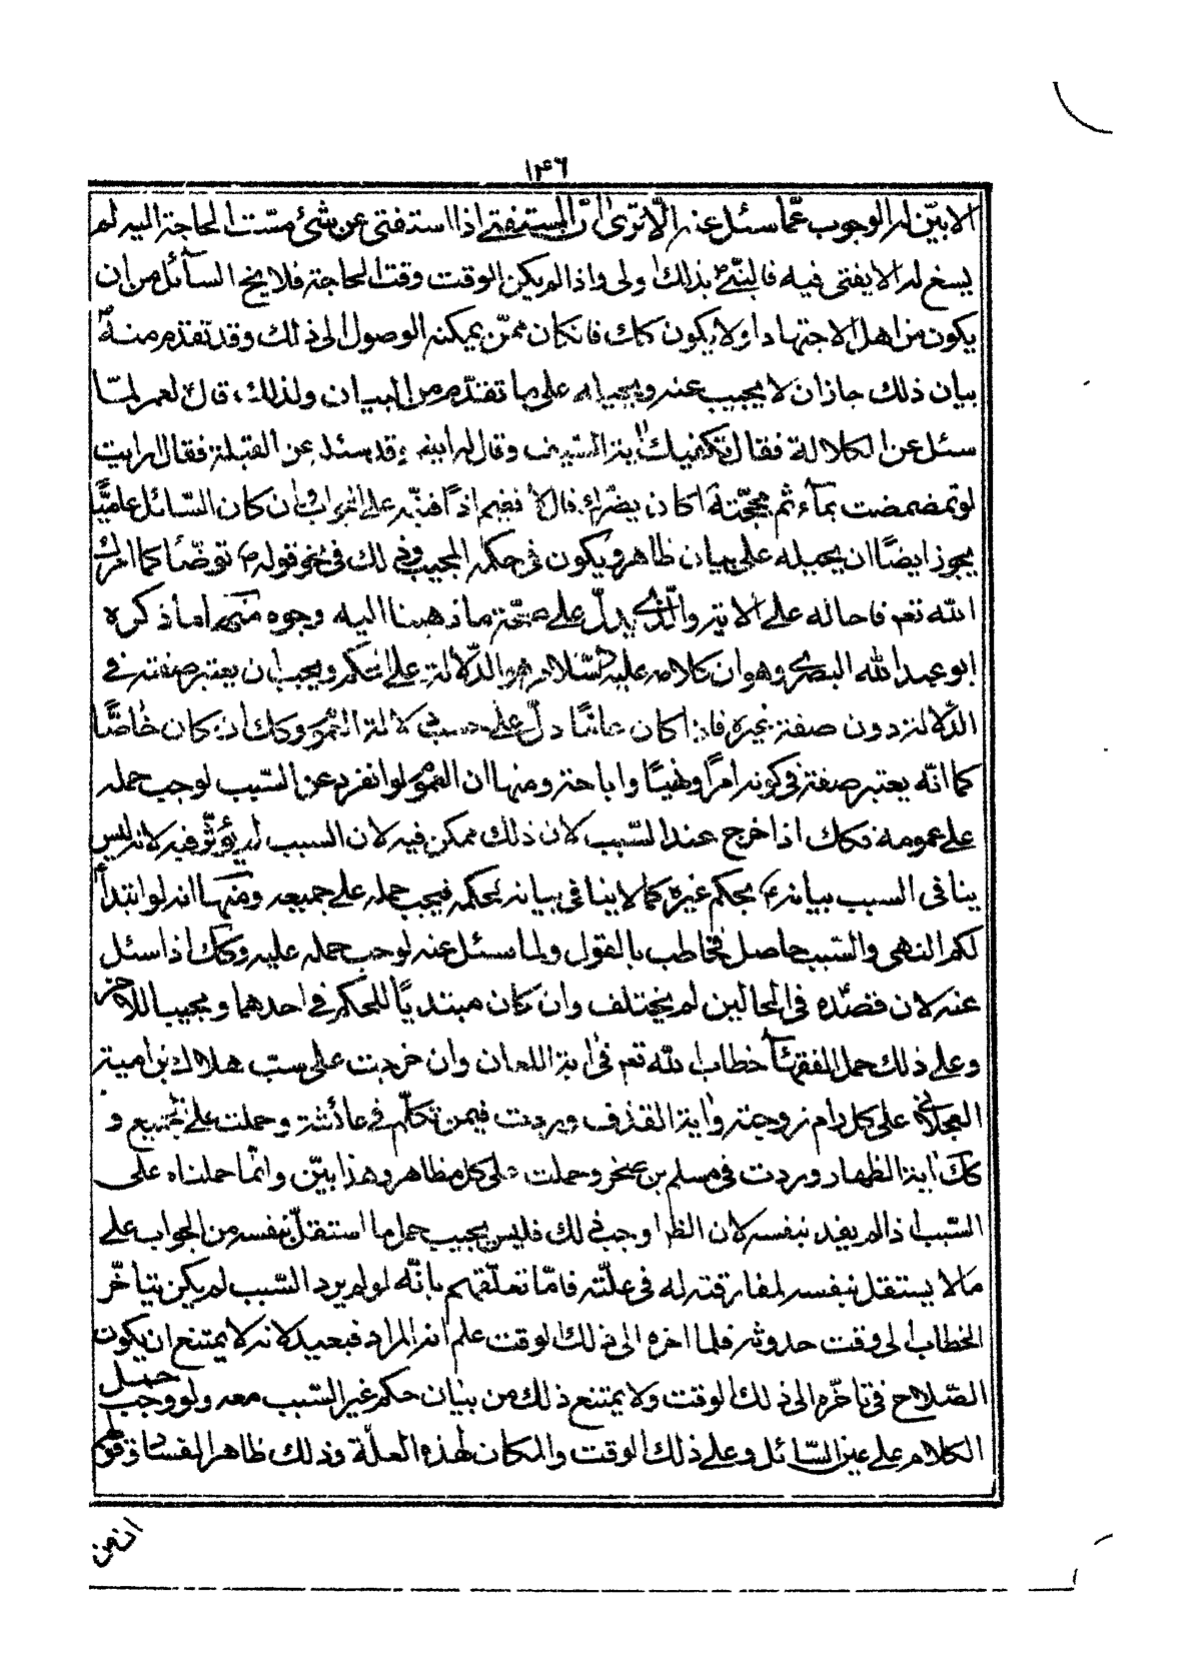 ١٤٦
الا بيّن له الوجوب عمّا سئل عنه الا ترى انّ المستفتى اذا استفتى عن شئ مسّت الحاجة اليه لم
يسغ له الا يفتى فيه فالنبىّ بذلك اولى واذا لم يكن الوقت وقت الحاجة فلا يخ السآئل من ان
يكون من اهل الاجتهاد او لا يكون كك فان كان ممّن يمكنه الوصول الى ذلك وقد تقدم منه
بيان ذلك جاز ان لا يجيب عنه ويحيله على ما تقدّم من البيان ولذلك قال لعمر لمّا
سئل عن الكلالة فقال تكفيك اية الصيف وقال له ايضا وقد سئل عن القبلة فقال ارايت
لو تمضمضت بمآء ثم مججته اكان يضرّك قال لا ففيم اذاً فنبّه على الجواب وان كان السّائل عاميًّا
يجوز ايضًا ان يحيله على بيان ظاهر ويكون فى حكم المجيب وذلك فى نحو قوله توضّأ كما امرك
الله تعم فاحاله على الاية والّذى يدلّ على صحّة ما ذهبنا اليه وجوه منها ما ذكره
ابو عبد الله البصرى وهو ان كلامه عليه السّلام هو الدّلالة على الحكم ويجب ان يعتبر صفته فى
الدّلالة دون صفة غيره فاذا كان عامًّا دلّ على حسب دلالة العموم وكك ان كان خاصًّا
كما انّه يعتبر صفته فى كونه امرًا ونهيًا واباحة ومنها ان العموم لو انفرد عن السّبب لوجب حمله
على عمومه فكك اذا خرج عند السّبب لان ذلك ممكن فيه لان السبب لم يؤثّر فيه لانه ليس
ينافى السبب بيانه بحكم غيره كما لا ينافى بيانه لحكمه فيجب حمله على جميعه ومنها انه لو ابتدأ
لكم النهى والسّبب حاصل فخاطب بالقول ولما سئل عنه لوجب حمله عليه وكك اذا سئل
عنه لان قصده فى الحالين لم يختلف وان كان مبتديًا للحكم فى احدهما ومجيبا للاخر
وعلى ذلك حمل الفقهآء خطاب الله تعم فى اية اللعان وان خرجت على سبب هلال بن امية
العجلانى على كل رام زوجته واية القذف وردت فيمن تكلّم فى عائشة وحملت على الجميع و
كك اية الظهار وردت فى مسلم بن صخر وحملت على كل مظاهر وهذا بيّن وانّما حملناه على
السّبب اذا لم يفد بنفسه لان الظاهر اوجب ذلك فليس يجب حمل ما استقلّ بنفسه من الجواب على
ما لا يستقل بنفسه لمفارقته له فى علّته فامّا تعلّقهم بانّه لو لم يرد السّبب لم يكن يتاخّر
الخطاب الى وقت حدوثه فلما اخره الى ذلك الوقت علم انه المراد فبعيد لانه لا يمتنع ان يكون
الصّلاح فى تاخّره الى ذلك الوقت ولا يمتنع ذلك من بيان حكم غير السّبب معه ولو وجب حمل
الكلام على عين السّائل وعلى ذلك الوقت والمكان لهذه العلّة وذلك ظاهر الفساد وقولهم
ان من